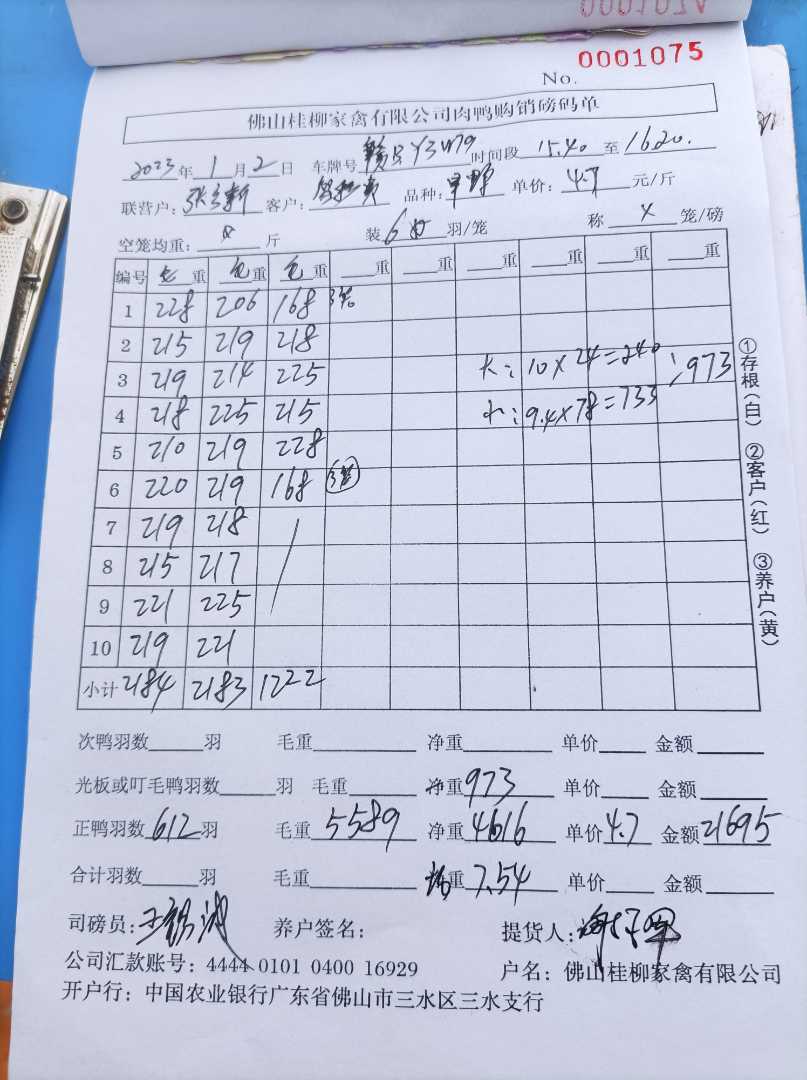 0001074
0001075
No.
佛山桂柳家禽有限公司肉鸭购销磅码单
2023年1月2日 车牌号 赣 Y3479 时间段 15.40 至 1620.
联营户: 张 新 客户: 品种: 单价: 4.7 元/斤
空笼均重: 斤 装 6 羽/笼 称 4 笼/磅
编号 毛重 毛重 毛重 重 重 重 重 重 重
1 228 206 168 3笼
2 215 219 218
3 219 214 225 大: 10×24=240
4 218 225 215 小: 9.4×78=733 973
5 210 219 228
6 220 219 168 3笼
7 219 218
8 215 217
9 221 225
10 219 221
小计 2184 2183 1222
①存根(白) ②客户(红) ③养户(黄)
次鸭羽数 羽 毛重 净重 单价 金额
光板或叮毛鸭羽数 羽 毛重 净重 973 单价 金额
正鸭羽数 612 羽 毛重 5589 净重 4616 单价 4.7 金额 21695
合计羽数 羽 毛重 均重 7.54 单价 金额
司磅员: 王 养户签名: 提货人: 谢
公司汇款账号: 4444 0101 0400 16929 户名: 佛山桂柳家禽有限公司
开户行: 中国农业银行广东省佛山市三水区三水支行